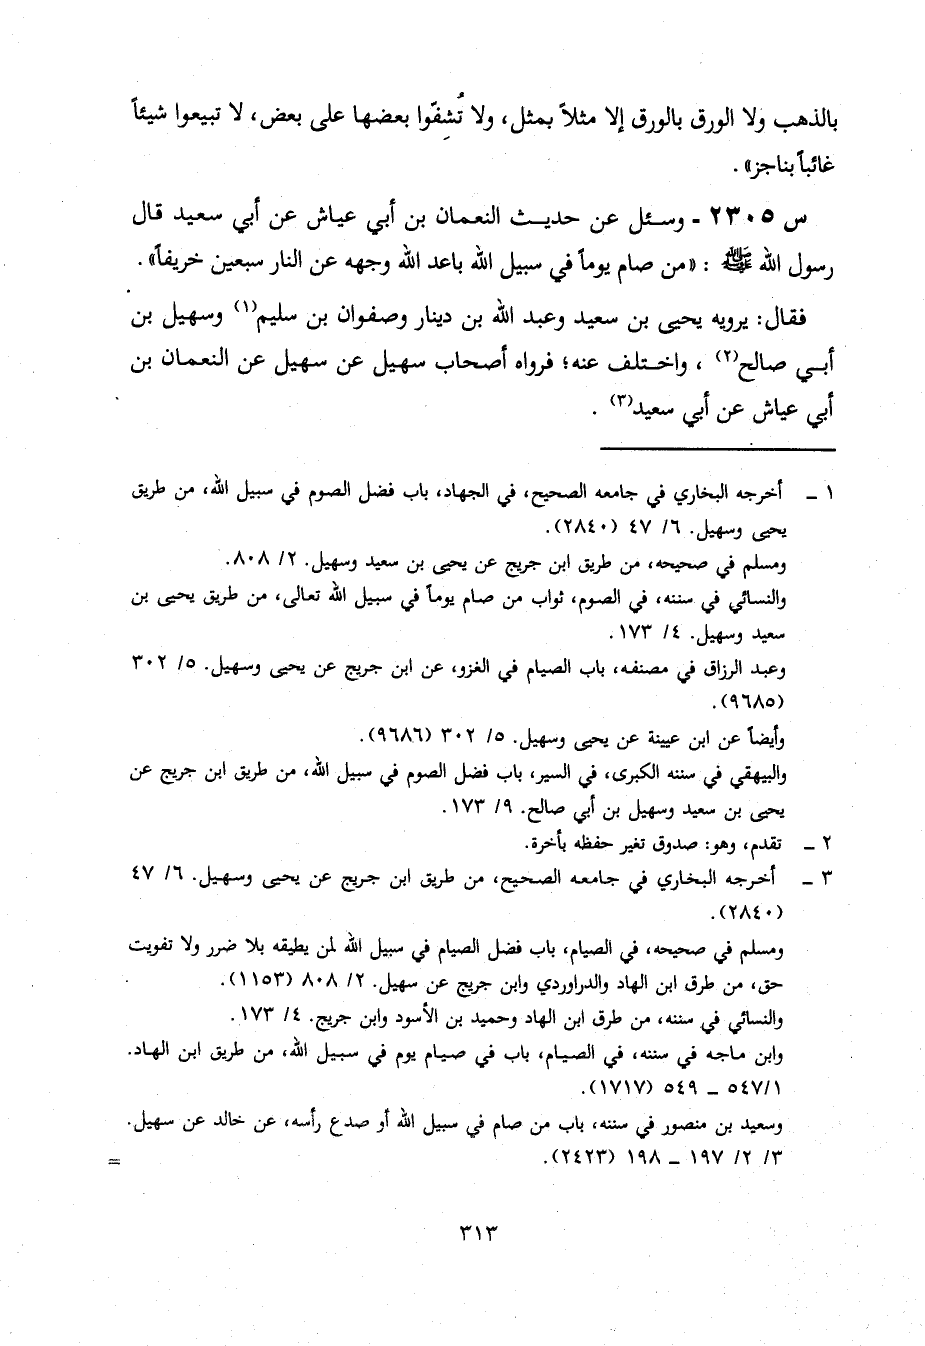 بالذهب ولا الورق بالورق إلا مثلاً بمثل، ولا تُشِفّوا بعضها على بعض، لا تبيعوا شيئاً
غائباً بناجز» .
س ٢٣٠٥ - وسئل عن حديث النعمان بن أبي عياش عن أبي سعيد قال
رسول الله ﷺ : «من صام يوماً في سبيل الله باعد الله وجهه عن النار سبعين خريفاً» .
فقال: يرويه يحيى بن سعيد وعبد الله بن دينار وصفوان بن سليم(١) وسهيل بن
أبي صالح(٢) ، واختلف عنه؛ فرواه أصحاب سهيل عن سهيل عن النعمان بن
أبي عياش عن أبي سعيد(٣) .
١ - أخرجه البخاري في جامعه الصحيح، في الجهاد، باب فضل الصوم في سبيل الله، من طريق
يحيى وسهيل. ٦/ ٤٧ (٢٨٤٠).
ومسلم في صحيحه، من طريق ابن جريج عن يحيى بن سعيد وسهيل. ٢/ ٨٠٨.
والنسائي في سننه، في الصوم، ثواب من صام يوماً في سبيل الله تعالى، من طريق يحيى بن
سعيد وسهيل. ٤/ ١٧٣.
وعبد الرزاق في مصنفه، باب الصيام في الغزو، عن ابن جريج عن يحيى وسهيل. ٥/ ٣٠٢
(٩٦٨٥).
وأيضاً عن ابن عيينة عن يحيى وسهيل. ٥/ ٣٠٢ (٩٦٨٦).
والبيهقي في سننه الكبرى، في السير، باب فضل الصوم في سبيل الله، من طريق ابن جريج عن
يحيى بن سعيد وسهيل بن أبي صالح. ٩/ ١٧٣.
٢ - تقدم، وهو: صدوق تغير حفظه بأخرة.
٣ - أخرجه البخاري في جامعه الصحيح، من طريق ابن جريج عن يحيى وسهيل. ٦/ ٤٧
(٢٨٤٠).
ومسلم في صحيحه، في الصيام، باب فضل الصيام في سبيل الله لمن يطيقه بلا ضرر ولا تفويت
حق، من طرق ابن الهاد والدراوردي وابن جريج عن سهيل. ٢/ ٨٠٨ (١١٥٣).
والنسائي في سننه، من طرق ابن الهاد وحميد بن الأسود وابن جريج. ٤/ ١٧٣.
وابن ماجه في سننه، في الصيام، باب في صيام يوم في سبيل الله، من طريق ابن الهاد.
١/٥٤٧ - ٥٤٩ (١٧١٧).
وسعيد بن منصور في سننه، باب من صام في سبيل الله أو صدع رأسه، عن خالد عن سهيل.
٣/ ٢/ ١٩٧ - ١٩٨ (٢٤٢٣).
=
٣١٣